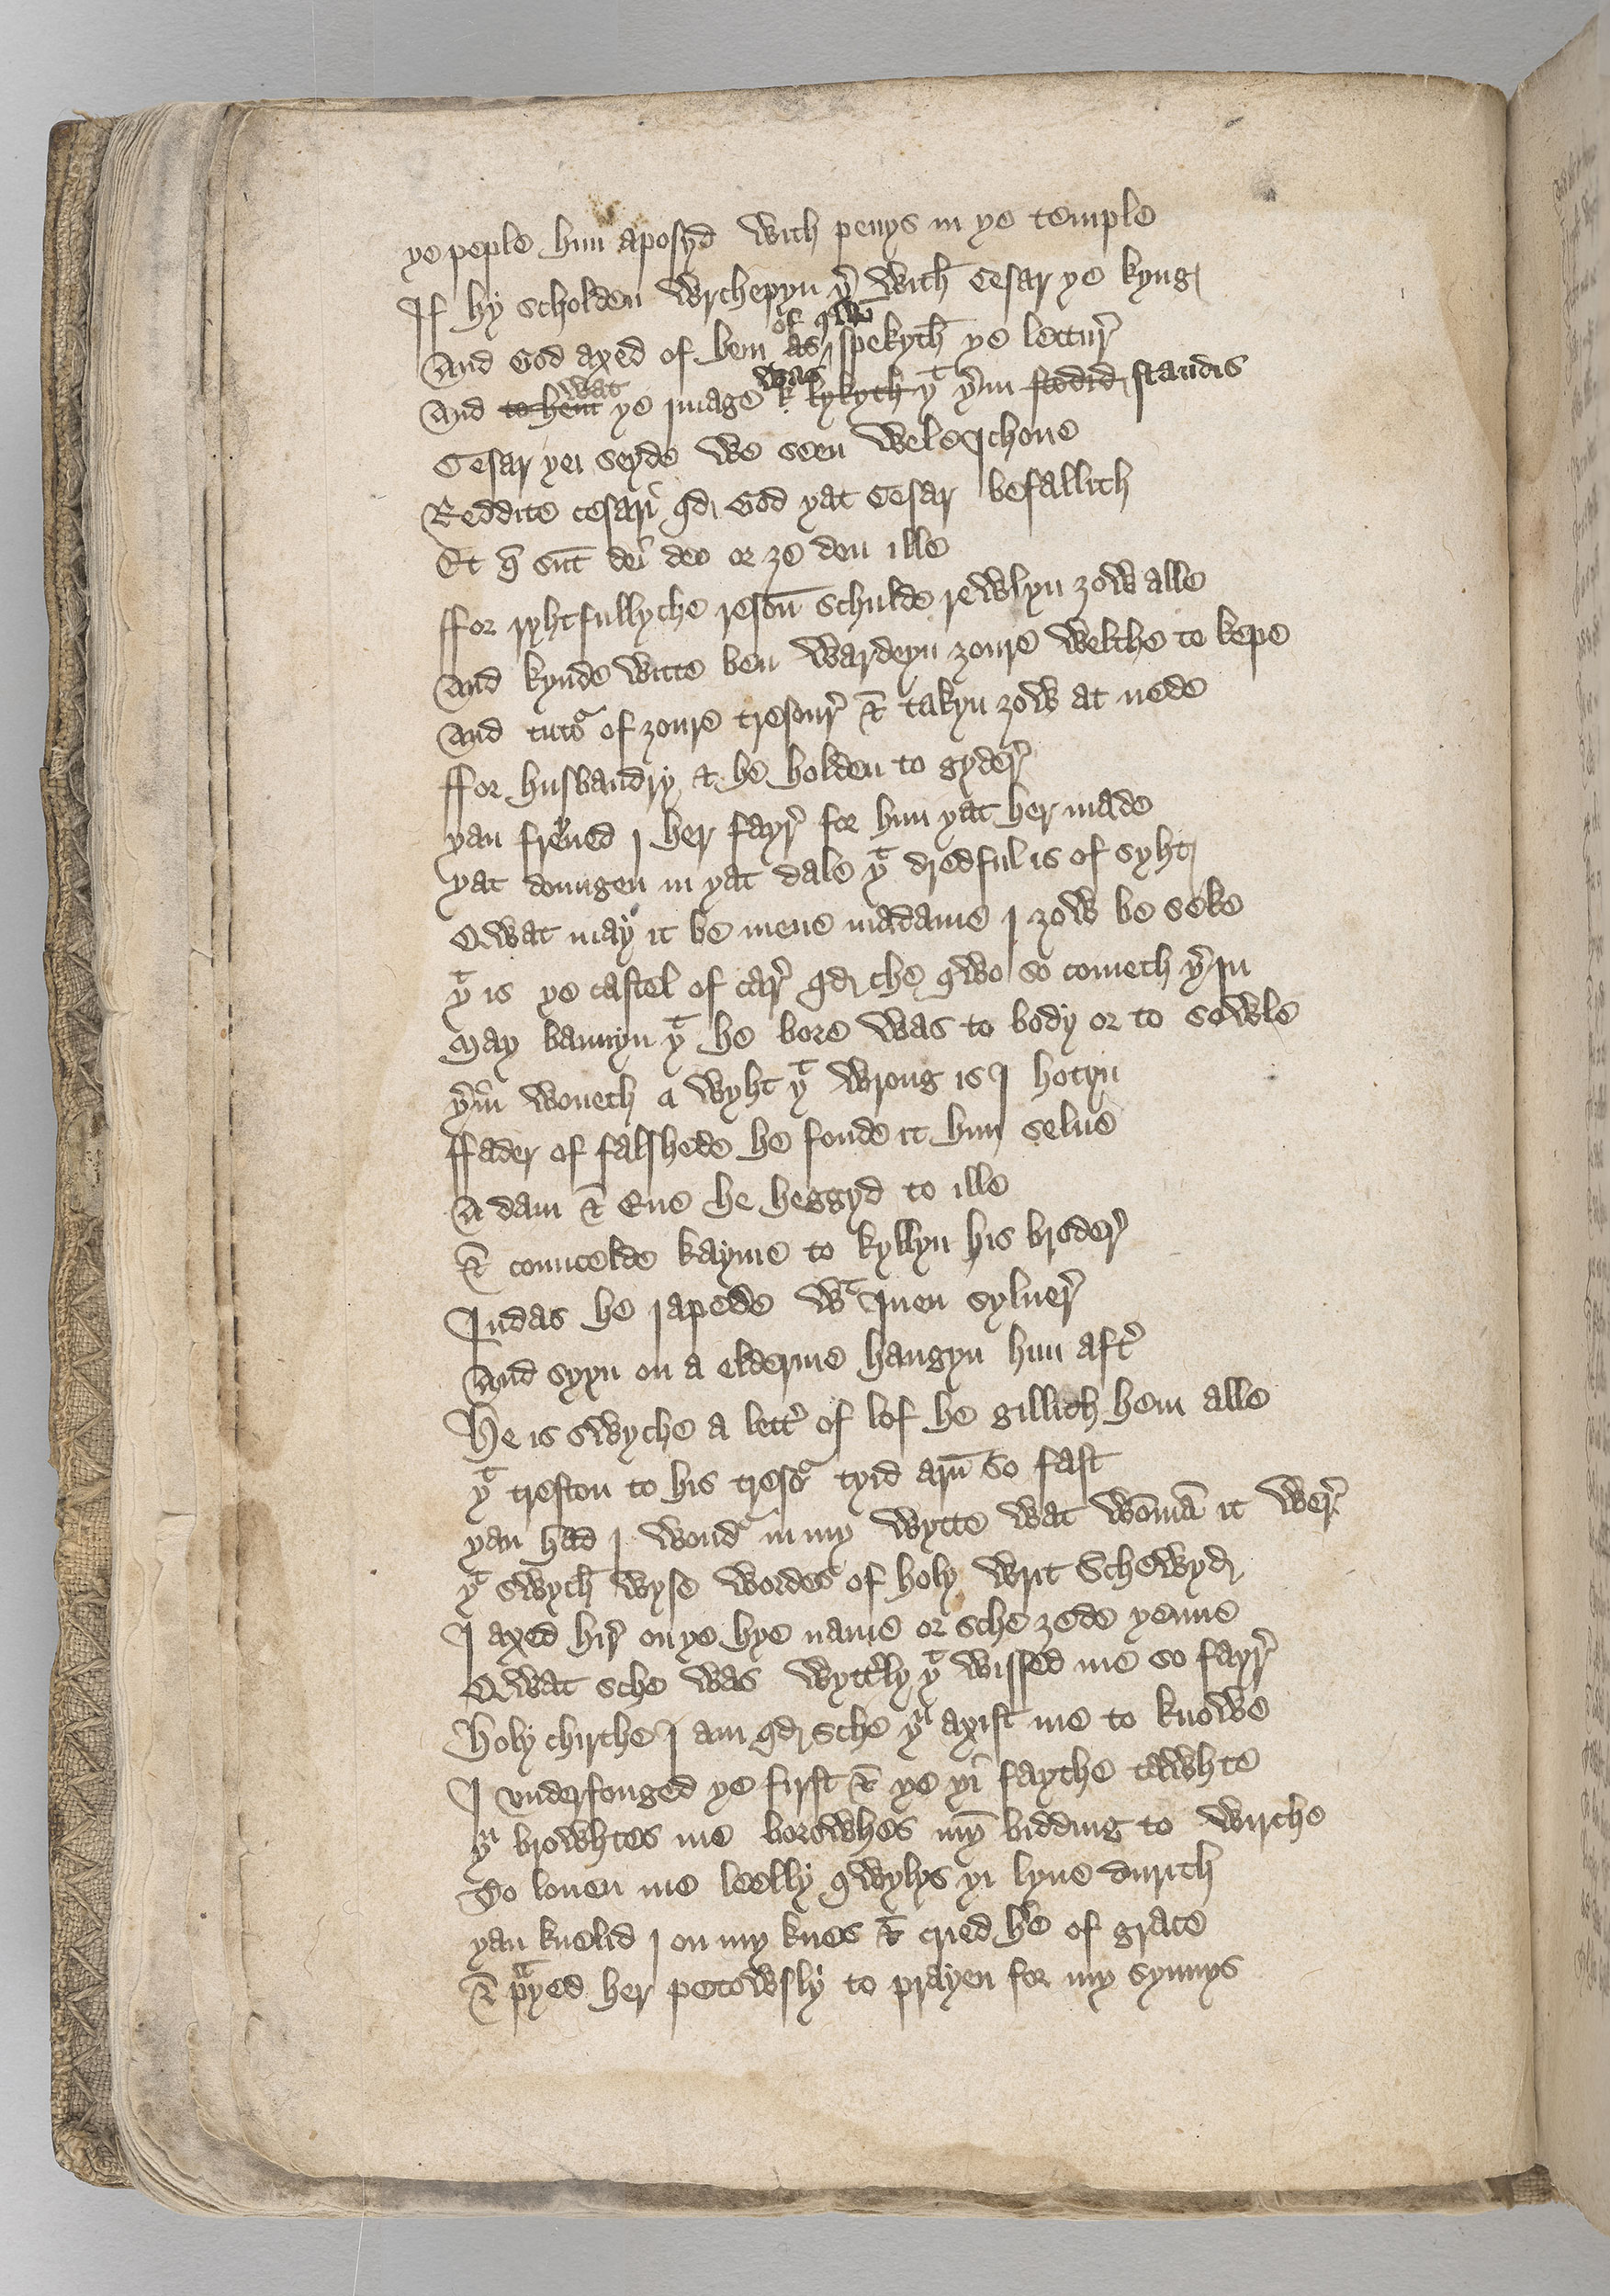 ye peple him aposyd with penys in ye temple
If hy scholden wrchepyn yͬ with Cesar ye kyng
And God axed of hem as of qwā spekyth ye lettur̛
And to hem wat ye ymage k lykyth was yᵗ yͬin stodid standis
Cesar yei seyde we seen wele ychone
Reddite cesari qd God yat Cesar befallith
Et q̄ sūt dei deo or ze don ille
ffor ryhtfullyche resoū schulde rewlyn zow alle
And kynde witte ben wardeyn zoure welthe to kepe
And tutoᷓ of zoure tresour̛ & takyn zow at nede
ffor husbandry & he holden to gyder̛
yan freyned I her fayr̛ for him yat her made
yat doungen in yat dale yᵗ dredful is of syht
Qwat may it be mene madame I zow be seke
yᵗ is ye castel of car̛ qd che qwo so cometh yͬ In
May bannyn yᵗ he bore was to body or to sowle
yͬin woneth a wyht yᵗ wrong is I hotyn
ffader of falshede he fonde it him selue
A dam & Eue he heggyd to ille
& councelde kayme to kyllyn his broder̛
Iudas he iapede wᵗ Iuen syluer̛
And syyn on a elderne hangyn him aft̛
He is swyche a lett̛ of lof he gillith hem alle
yᵗ treston to his tresoᷓ tyid arn̄ so fast
yan had I wondᷓ in my wytte wat womā it wer̛
yᵗ swych wyse wordes of holy writ Schewyd
I axed hir̛ on ye hye name or sche zede yenne
Qwat sche was wytt̛ly yᵗ wissed me so fayr̛
Holy chirche I am qd sche yᵘ axist me to knowe
I underfonged ye first & ye yi faythe tawhte
yᵘ browhtes me borowhes my bidding to wirche
To louen me leelly qwylys yi lyue durith
yan knelid I on my knes & cried he of grace
& pᷓyed her petowsly to prayen for my synnys